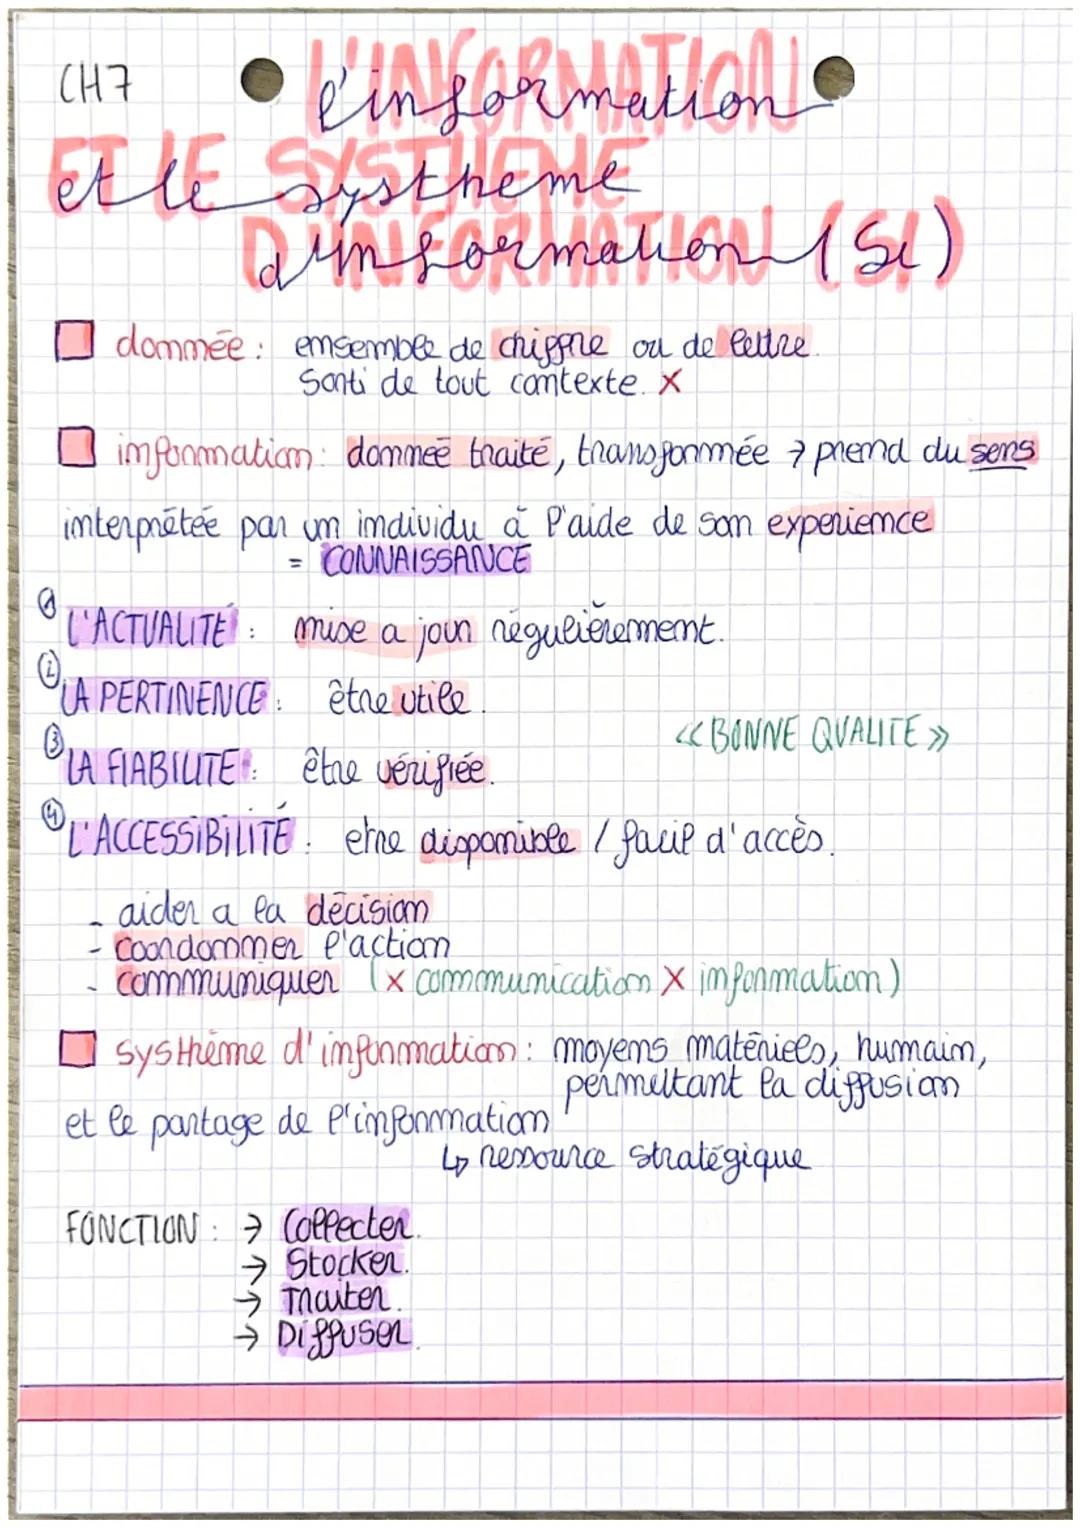 CH7
L'INFORMATION
l'information
ET LE SYSTHEME
et le systheme
D'INFORMATION (SI)
d'information (SI)
donnée : ensemble de chiffre ou de lettre.
Sorti de tout contexte. X
information : donneé traité, transformée → prend du sens
interprétée par un individu à l'aide de son experience
= CONNAISSANCE
① L'ACTUALITÉ : mise a jour régulièrement.
② LA PERTINENCE : être utile.
<< BONNE QUALITE >>
③ LA FIABILITE : être vérifiée.
④ L'ACCESSIBILITÉ : etre disponible / facil d'accès.
- aider a la décision
- coordonner l'action
- communiquer (X communication X information)
systhème d'information : moyens matériels, humain,
permettant la diffusion
et le partage de l'information
↳ ressource stratégique
FONCTION : → Collecter.
→ Stocker.
→ Traiter.
→ Diffuser.